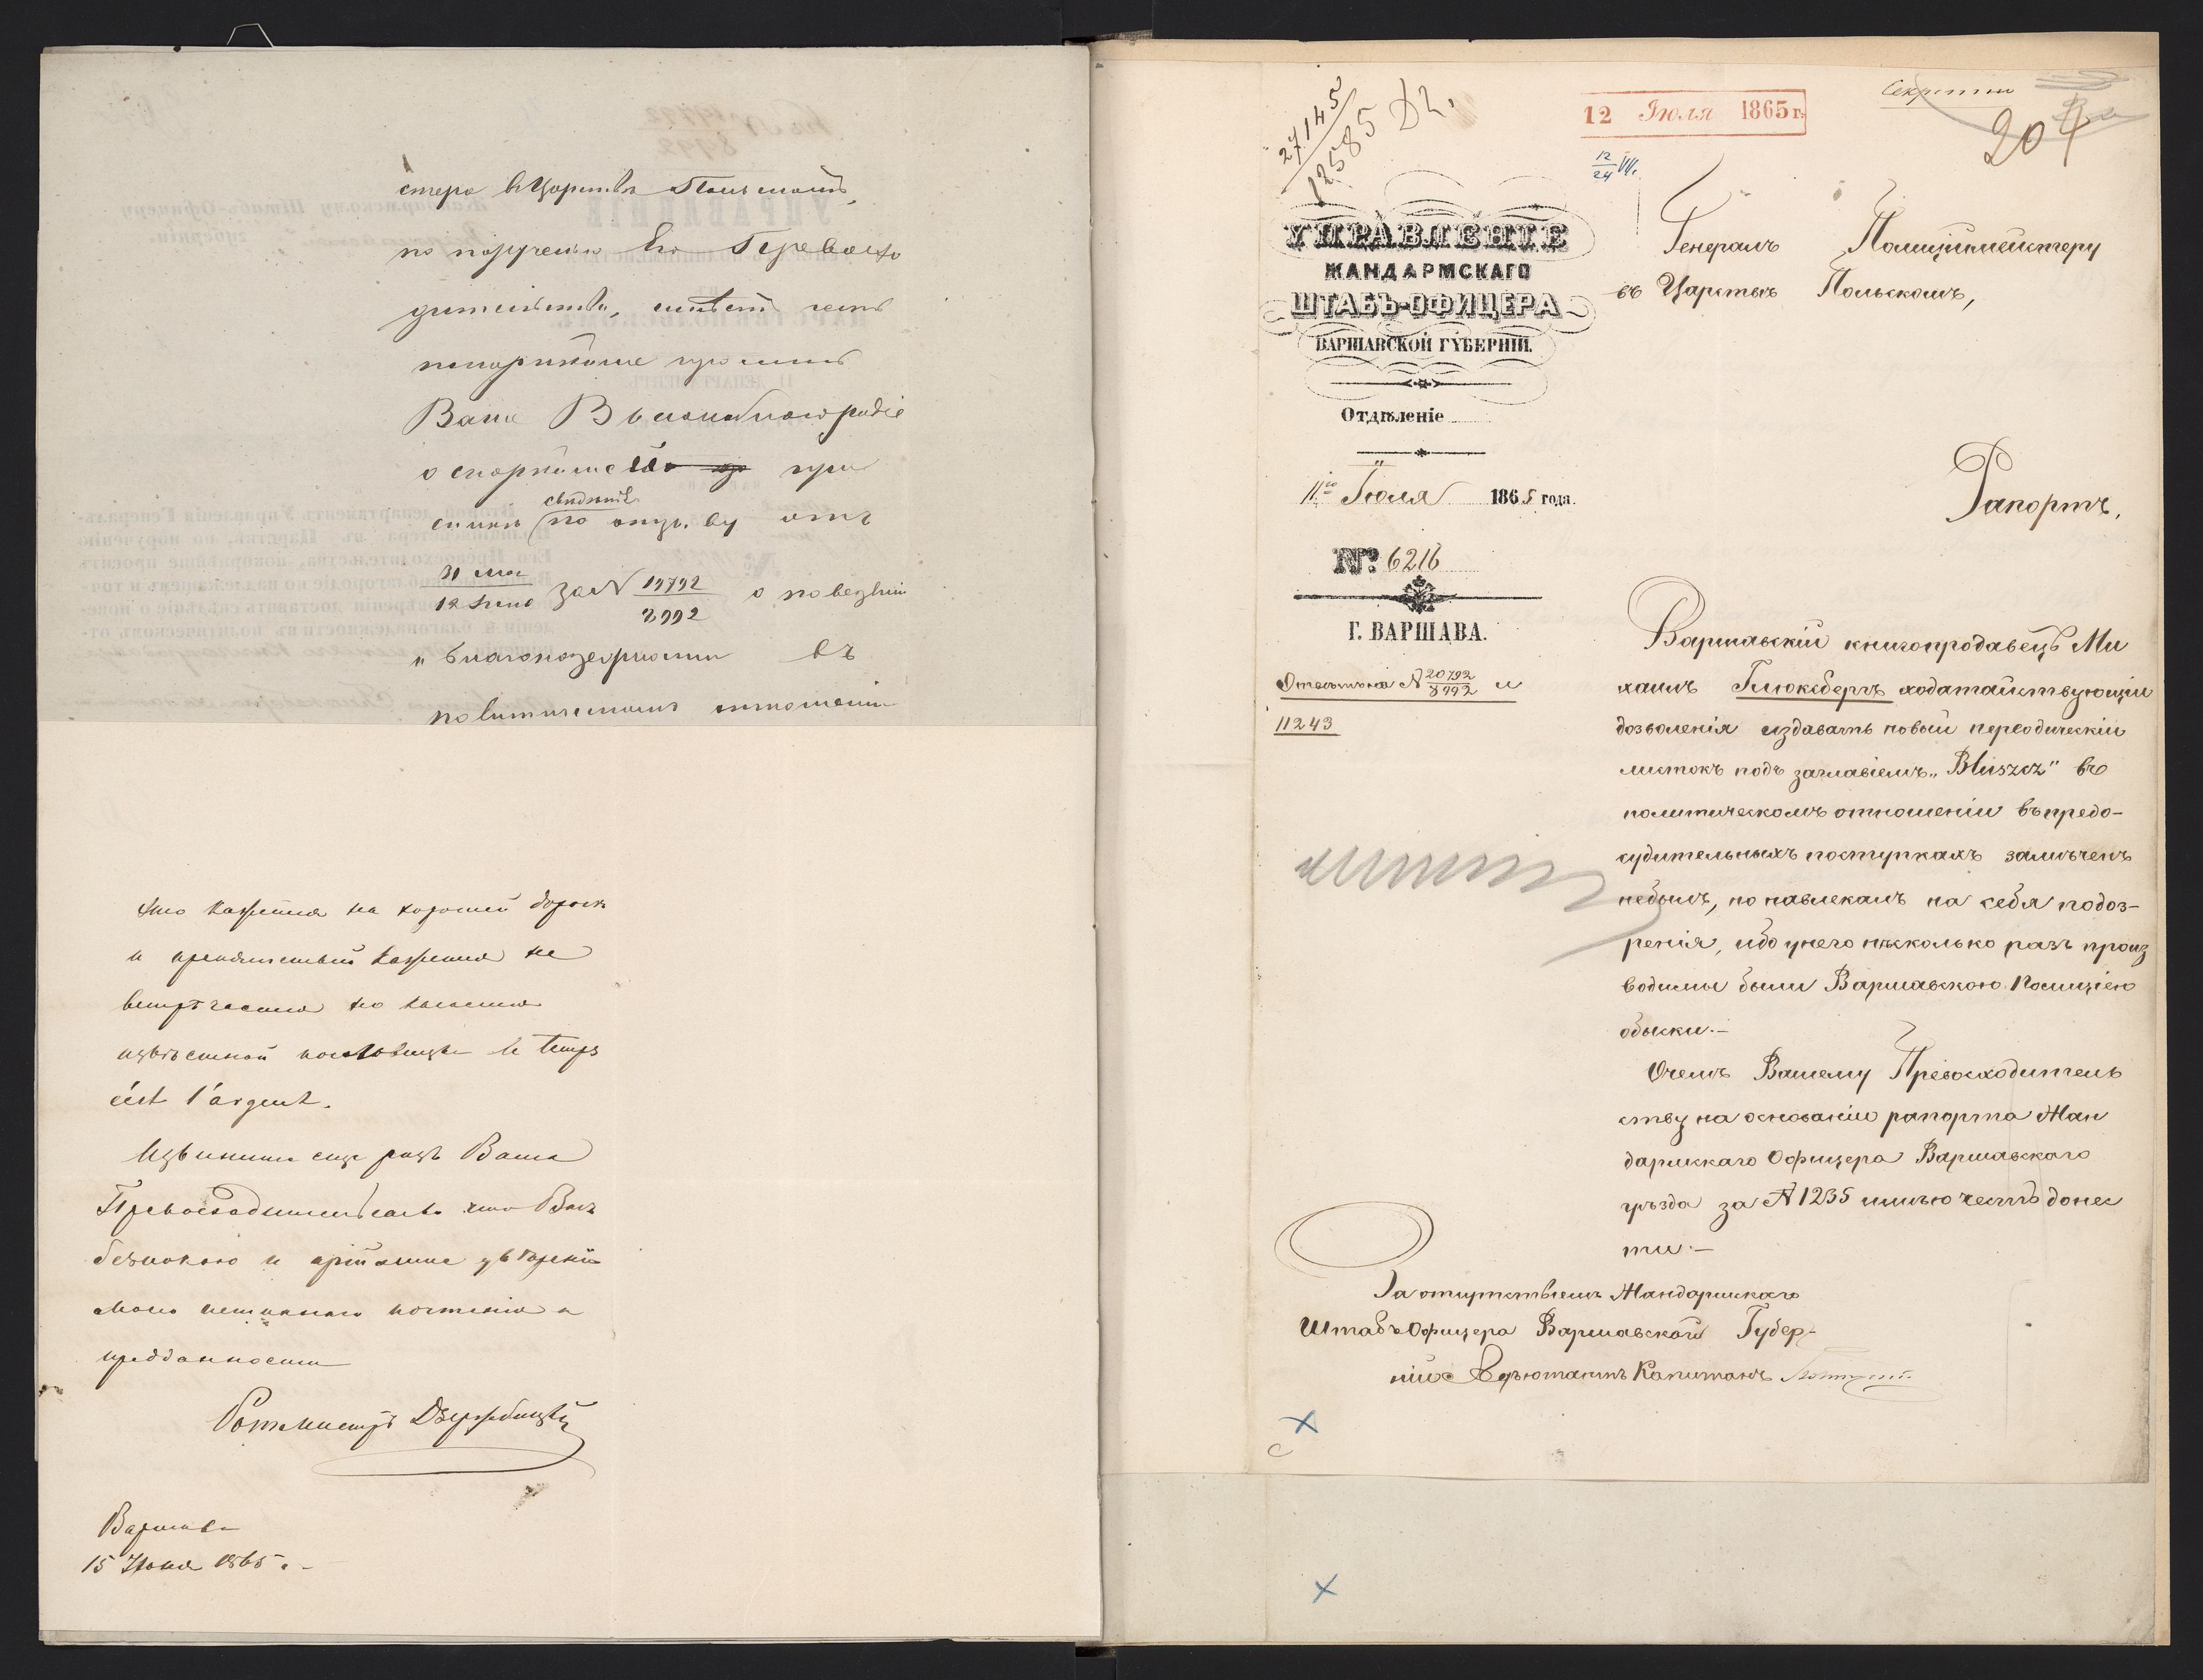 стера въ Царствѣ Польскомъ,
по порученію Его Превосхо
дительства, имѣетъ честь
покорнѣйше просить
Ваше Высокоблагородіе
о скорѣйшей при
свѣдѣній
сылкѣ по отзыву отъ
31 мая / 12 Іюня за N 19792 / 8992 о поведеніи
и благонадежности въ
политическомъ отношеніи
Это кажется на хорошей дорогѣ
и препятствій кажется не
встрѣчается но
извѣстной пословицѣ le temps
c'est l'argent.
Извините еще разъ Ваше
Превосходительство что Васъ
безпокою и примите увѣреніе
моего истиннаго почтенія и
преданности
Ротмистръ
Варшава
15 Іюня 1865 г.
27145 / 12585
12 Іюля 1865 г.
Секретно
204
12/24 VII.
УПРАВЛЕНІЕ
ЖАНДАРМСКАГО
ШТАБЪ-ОФИЦЕРА
ВАРШАВСКОЙ ГУБЕРНІИ.
Отдѣленіе
11го Іюля 1865 года.
№ 6216
Г. ВАРШАВА.
Отвѣтъ на N 20792 / 8992 и
11243
Генералъ Полицiймейстеру
въ Царствѣ Польскомъ,
Рапортъ.
Варшавскій книгопродавецъ Ми
хаилъ Глюксбергъ ходатайствующій
дозволенія издавать новый періодическій
листокъ подъ заглавіемъ „Bluszcz" въ
политическомъ отношеніи въ предо-
судительныхъ поступкахъ замѣченъ
небылъ, но навлекалъ на себя подоз-
ренія, ибо у него нѣсколько разъ произ
водимы были Варшавскою Полиціею
обыски.-
О чемъ Вашему Превосходитель
ству на основаніи рапорта Жан
дармскаго Офицера Варшавскаго
уѣзда за N 1235 имѣю честь донес
ти.-
За отсутствіемъ Жандармскаго
Штабъ Офицера Варшавской Губер-
ніи Адъютантъ Капитанъ